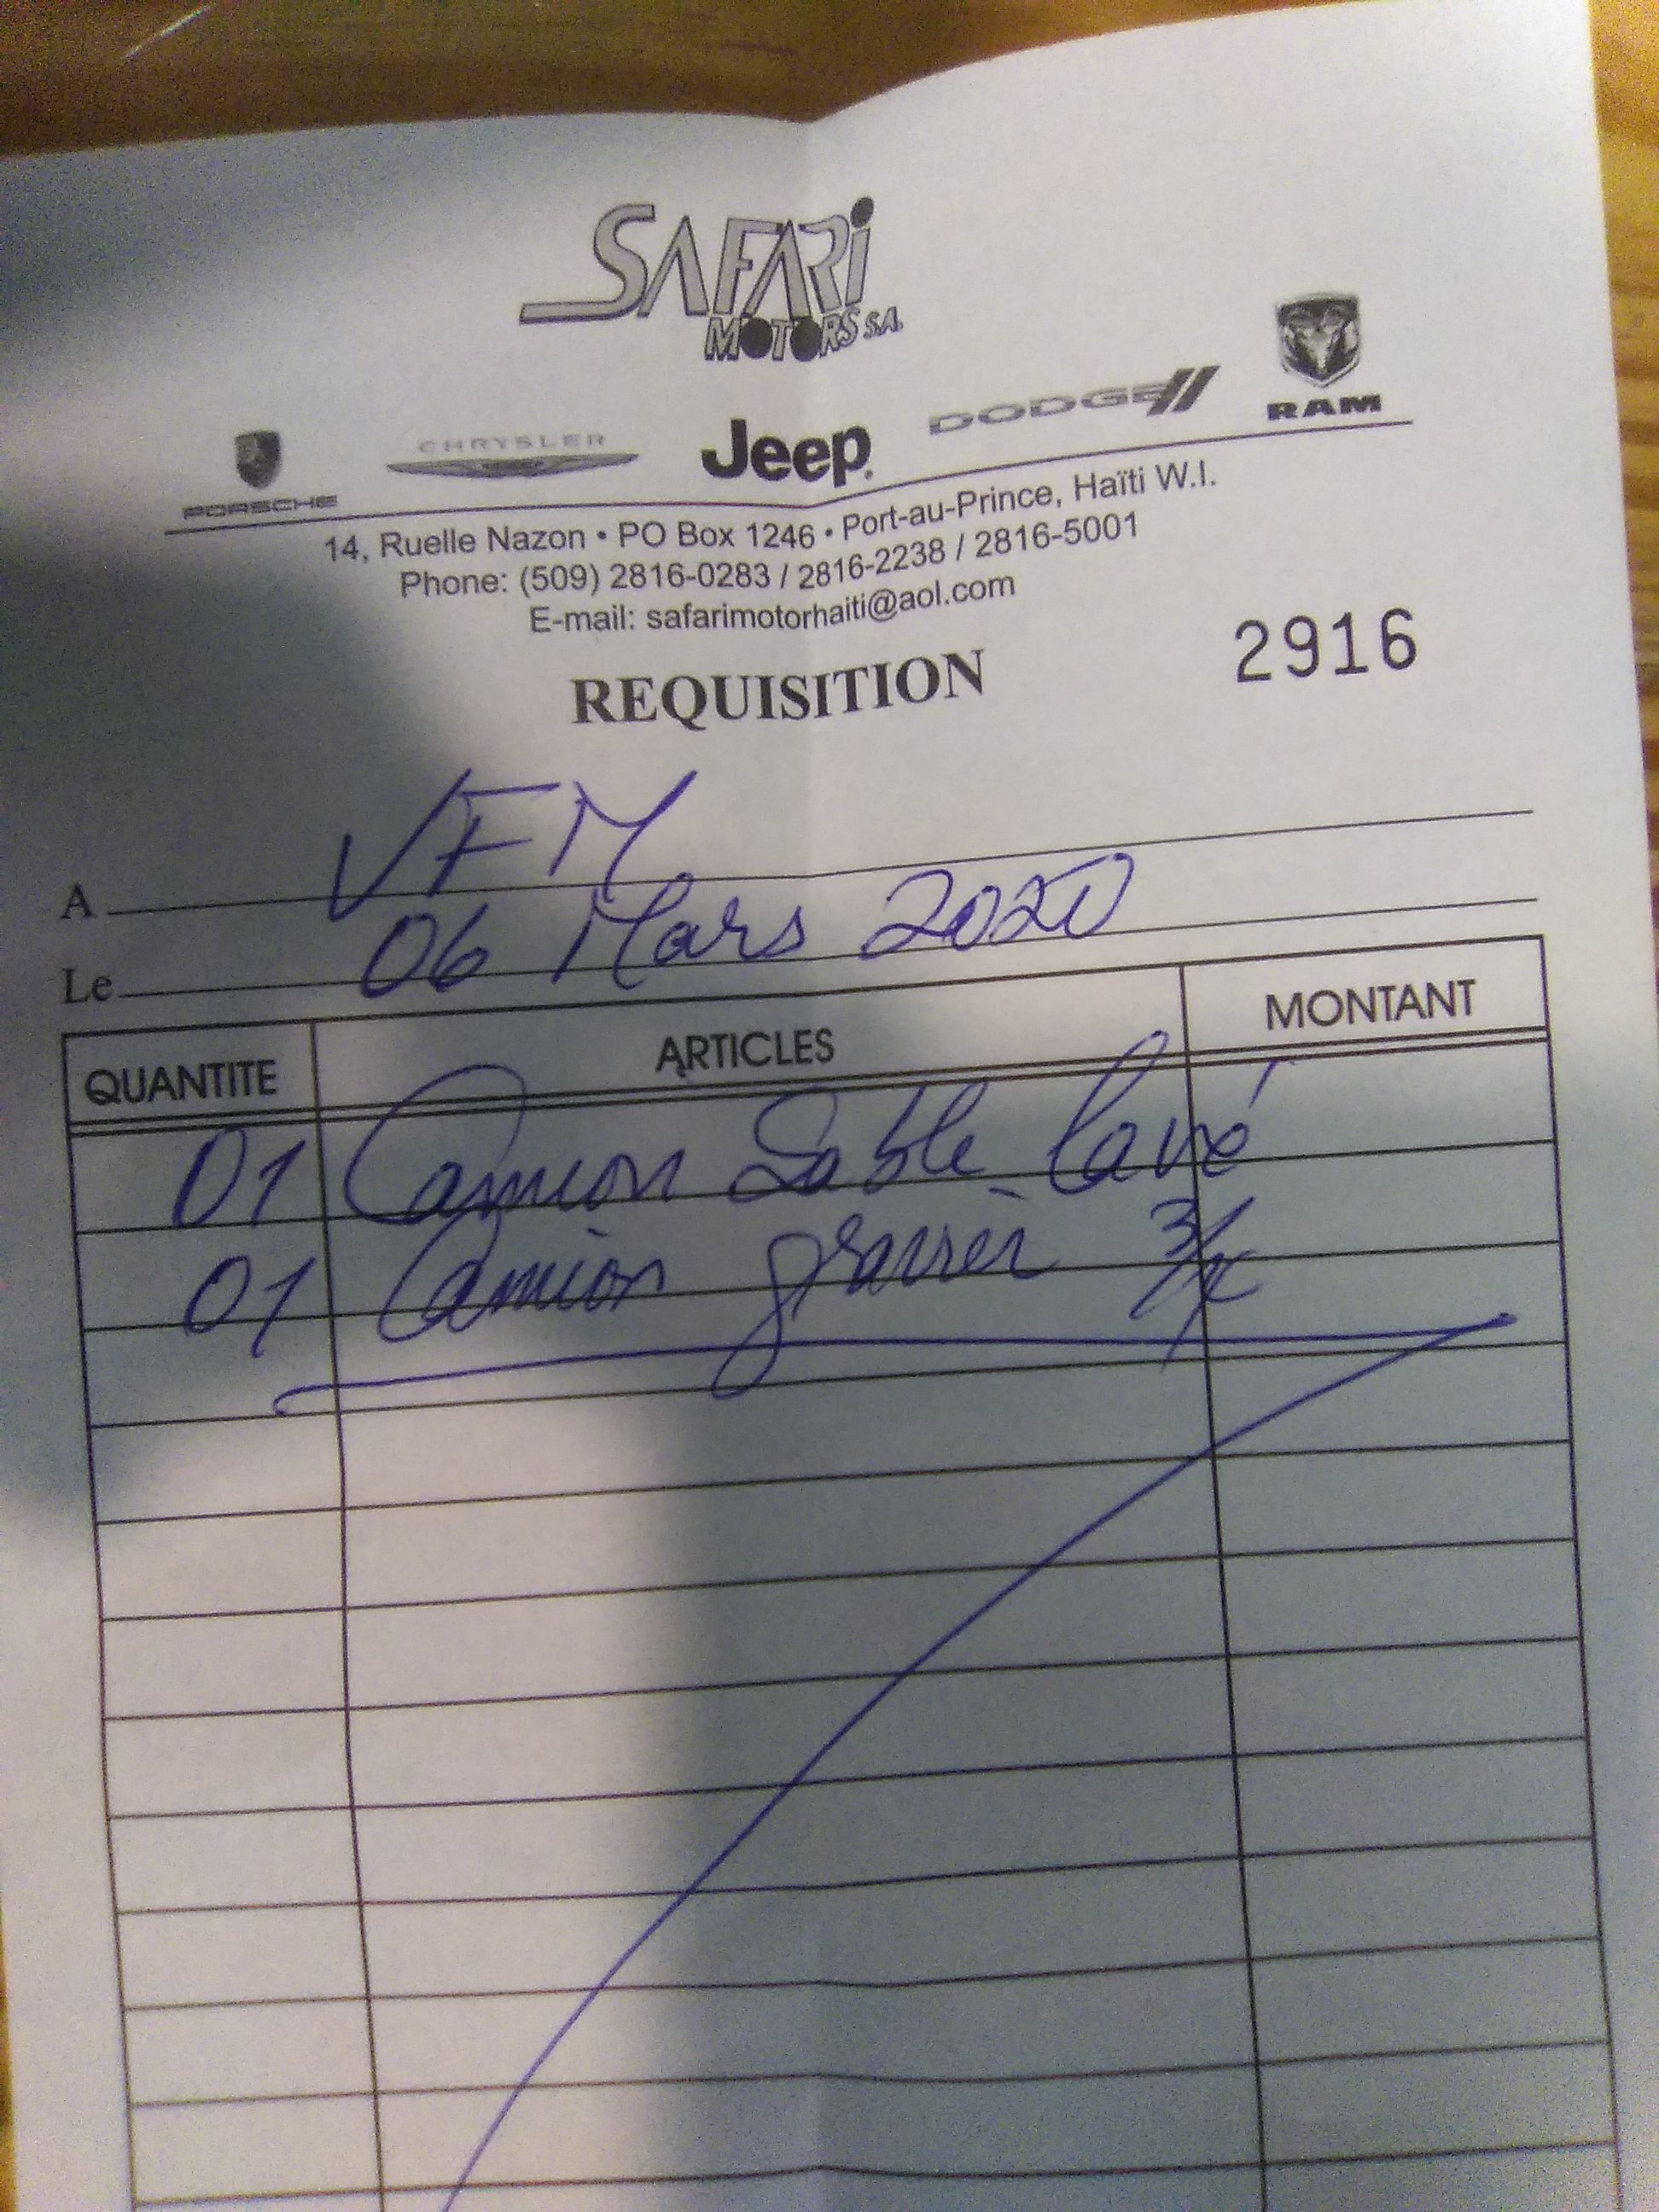 SAFARI
MOTORS S.A.
PORSCHE CHRYSLER Jeep DODGE RAM
14, Ruelle Nazon • PO Box 1246 • Port-au-Prince, Haïti W.I.
Phone: (509) 2816-0283 / 2816-2238 / 2816-5001
E-mail: safarimotorhaiti@aol.com
REQUISITION 2916
A VFM
Le 06 Mars 2020
QUANTITE ARTICLES MONTANT
01 Camion Sable lavé
01 Camion gravier 3/4